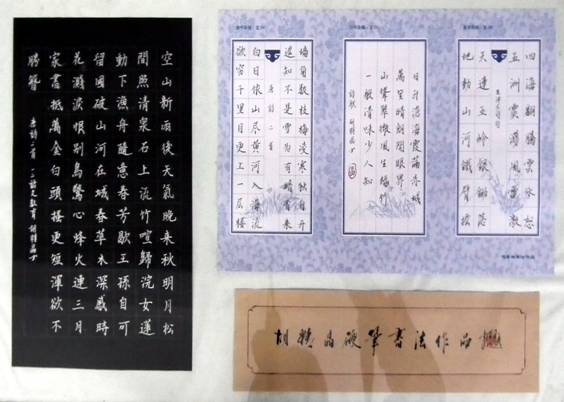 空山新雨後天氣晚來秋明月松
間照清泉石上流竹喧歸浣女蓮
動下漁舟隨意春芳歇王孫自可
留國破山河在城春草木深感時
花濺淚恨別鳥驚心烽火連三月
家書抵萬金白頭搔更短渾欲不
勝簪 唐詩二首
四海翻騰雲水怒
五洲震蕩風雷激
天連五岭銀鋤落
地動山河鐵臂搖
日升滄海霞滿赤城
萬里晴朗開眼界
山聳翠微風生綠竹
一般清味少人知
墻角數枝梅凌寒獨自開
遥知不是雪為有暗香來
唐詩二首
白日依山尽黃河入海流
欲窮千里目更上一层樓
胡 晶硬筆書法作品